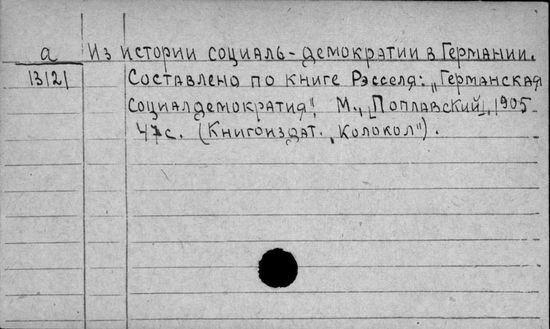 а Из истории социаль-демократии в Германии.
13121 Составлено по книге Рэсселя: „Германская
социалдемократия". М., [Поплавский], 1905
47с. (Книгоиздат. „Колокол").